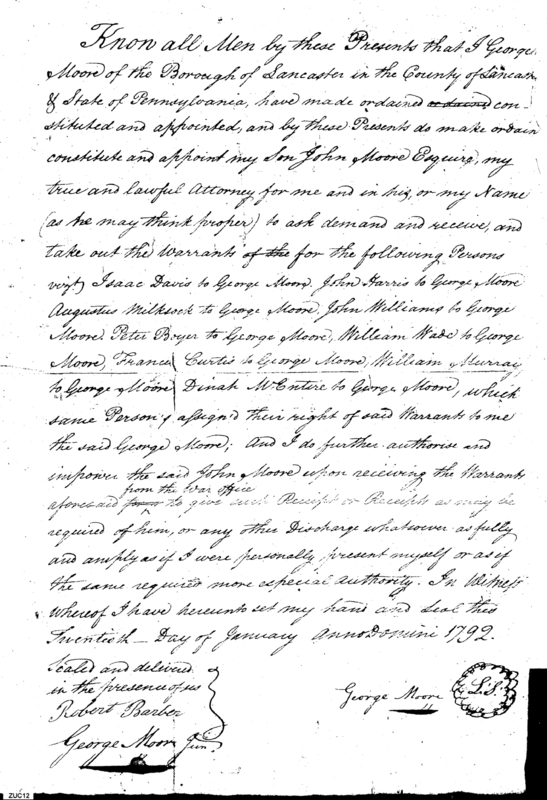 Know all Men by these Presents that I George
Moore of the Borough of Lancaster in the County of Lancaster
& State of Pennsylvania, have made ordained ordained con-
stituted and appointed, and by these Presents do make ordain
constitute and appoint my Son John Moore Esquire, my
true and lawful Attorney for me and in his, or my Name
(as he may think proper) to ask demand and receive, and
take out the Warrants of the for the following Persons
vizt, Isaac Davis to George Moore, John Harris to George Moore
Augustus Milksock to George Moore, John Williams to George
Moore, Peter Boyer to George Moore, William Wade to George
Moore, Francis Curtis to George Moore, William Murray
to George Moore Dinah McEntire to George Moore, which
same Persons assign'd their right of said Warrants to me
the said George Moore; And I do further authorise and
impower the said John Moore upon receiving the Warrants
from the War office
aforesaid to give such Receipt or Receipts as may be
required of him, or any other Discharge whatsoever as fully
and amply as if I were personally present myself or as if
the same required more especial authority. In Witness
Whereof I have hereunto set my hand and seal this
Twentieth Day of January Anno Domini 1792.
Sealed and delivered
in the presence of us
Robert Barber
George Moore Junr
George Moore
L.S.
ZUC12